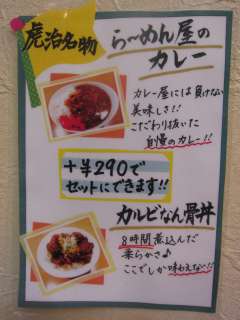 虎治名物
らーめん屋の
カレー
カレー屋には負けない
美味しさ!!
こだわり抜いた
自慢のカレー!!
+¥290で
セットにできます!!
カルビなん骨丼
8時間煮込んだ
柔らかさ♪
ここでしか味わえない!!